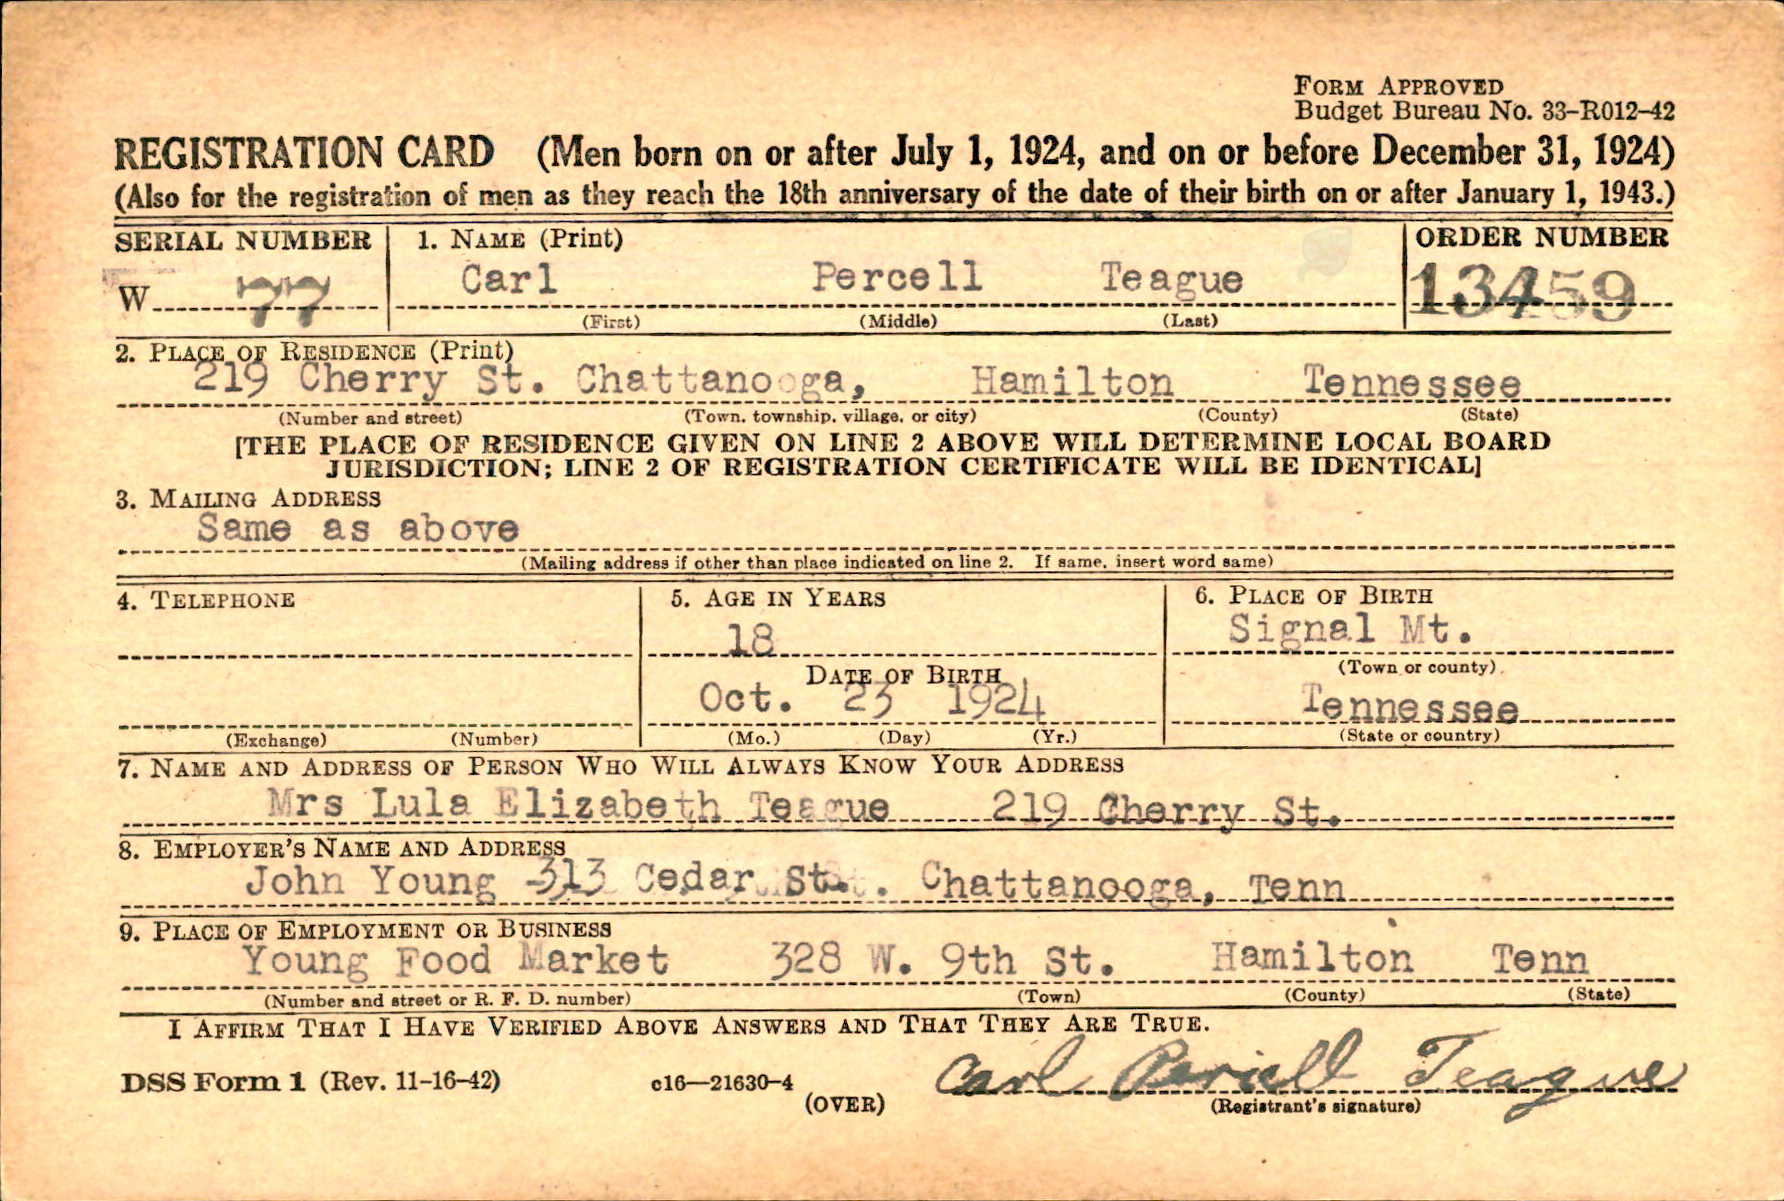 FORM APPROVED
Budget Bureau No. 33–R012–42
REGISTRATION CARD (Men born on or after July 1, 1924, and on or before December 31, 1924)
(Also for the registration of men as they reach the 18th anniversary of the date of their birth on or after January 1, 1943.)
SERIAL NUMBER 1. NAME (Print) ORDER NUMBER
W 77 Carl Percell Teague 13459
(First) (Middle) (Last)
2. PLACE OF RESIDENCE (Print)
219 Cherry St. Chattanooga, Hamilton Tennessee
(Number and street) (Town, township, village, or city) (County) (State)
[THE PLACE OF RESIDENCE GIVEN ON LINE 2 ABOVE WILL DETERMINE LOCAL BOARD
JURISDICTION; LINE 2 OF REGISTRATION CERTIFICATE WILL BE IDENTICAL]
3. MAILING ADDRESS
Same as above
(Mailing address if other than place indicated on line 2. If same, insert word same)
4. TELEPHONE 5. AGE IN YEARS 6. PLACE OF BIRTH
18 Signal Mt.
DATE OF BIRTH (Town or county)
Oct. 23 1924 Tennessee
(Exchange) (Number) (Mo.) (Day) (Yr.) (State or country)
7. NAME AND ADDRESS OF PERSON WHO WILL ALWAYS KNOW YOUR ADDRESS
Mrs Lula Elizabeth Teague 219 Cherry St.
8. EMPLOYER'S NAME AND ADDRESS
John Young 313 Cedar St. Chattanooga, Tenn
9. PLACE OF EMPLOYMENT OR BUSINESS
Young Food Market 328 W. 9th St. Hamilton Tenn
(Number and street or R. F. D. number) (Town) (County) (State)
I AFFIRM THAT I HAVE VERIFIED ABOVE ANSWERS AND THAT THEY ARE TRUE.
DSS Form 1 (Rev. 11–16–42) c16—21630–4 (OVER) Carl Percell Teague
(Registrant's signature)